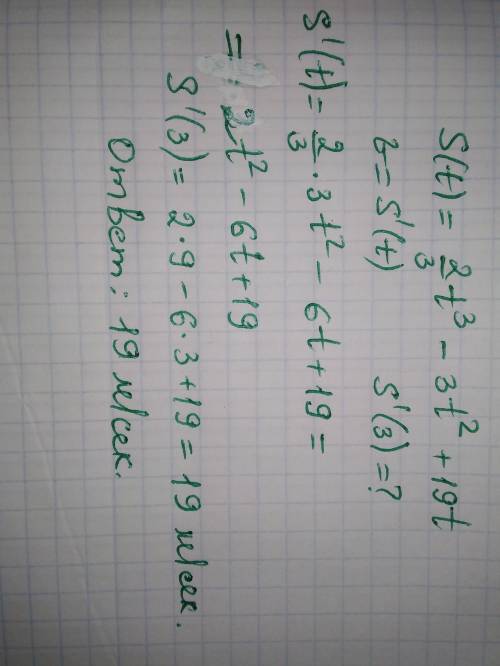 S(t) = 2/3 t³ - 3t² + 19t
v = S'(t) S'(3) = ?
S'(t) = 2/3 · 3t² - 6t + 19 =
= 2t² - 6t + 19
S'(3) = 2·9 - 6·3 + 19 = 19 м/сек.
Ответ: 19 м/сек.